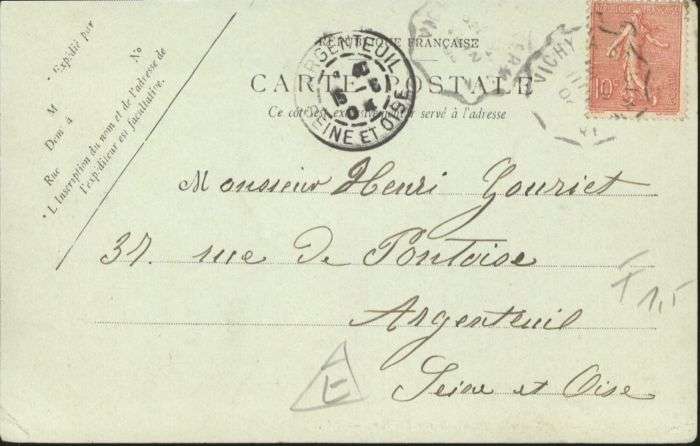 RÉPUBLIQUE FRANÇAISE
CARTE POSTALE
Ce côté est exclusivement réservé à l'adresse
Expédié par
M
No
Dem à
Rue
L'Inscription du nom et de l'adresse de
l'expéditeur est facultative.
ARGENTEUIL
SEINE ET OISE
VICHY
RÉPUBLIQUE FRANÇAISE
10
Monsieur Henri Gouriet
37. rue de Pontoise
Argenteuil
Seine et Oise
E
1,5